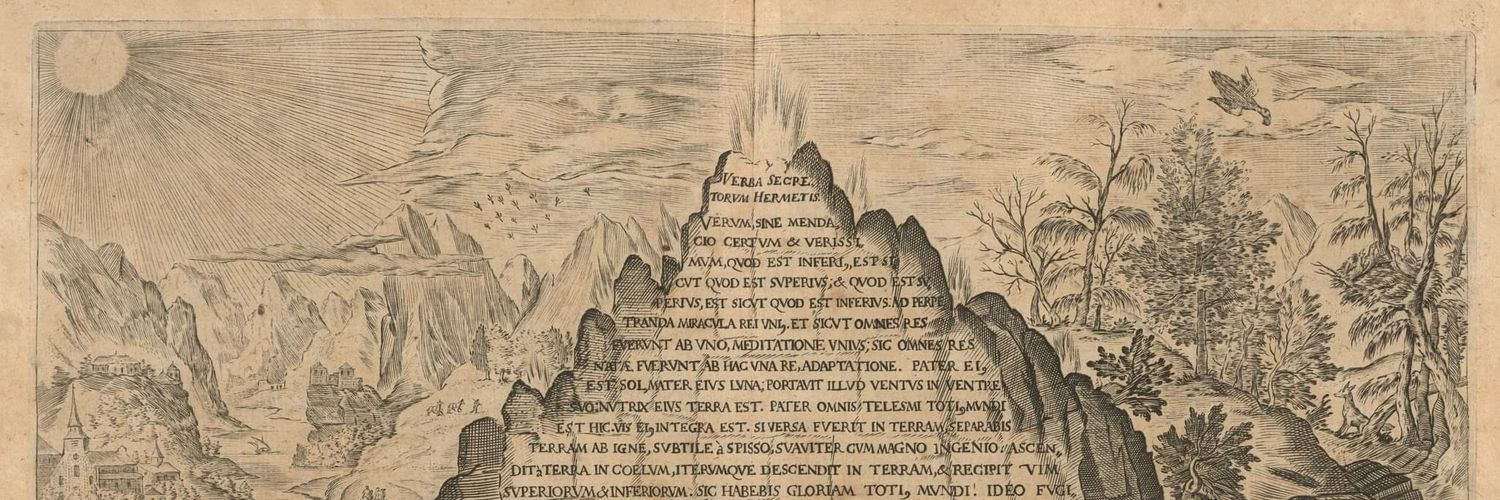 VERBA SECRE,
TORVM HERMETIS.
VERVM, SINE MENDA,
CIO CERTVM & VERISSI,
MVM, QVOD EST INFERI,, EST SI,
CVT QVOD EST SVPERIVS,; & QVOD EST SV,
PERIVS, EST SICVT QVOD EST INFERIVS. AD PERPE
TRANDA MIRACVLA REI VNI,, ET SICVT OMNES RES
FVERVNT AB VNO, MEDITATIONE VNIVS; SIC OMNES RES
NATÆ FVERVNT AB HAC VNA RE, ADAPTATIONE. PATER EI,
EST SOL, MATER EIVS LVNA; PORTAVIT ILLVD VENTVS IN VENTRE
SVO; NVTRIX EIVS TERRA EST. PATER OMNIS TELESMI TOTI, MVNDI
EST HIC. VIS EI, INTEGRA EST. SI VERSA FVERIT IN TERRAM, SEPARABIS
TERRAM AB IGNE, SVBTILE à SPISSO, SVAVITER CVM MAGNO INGENIO. ASCEN,
DIT à TERRA IN COELVM, ITERVMQVE DESCENDIT IN TERRAM, & RECIPIT VIM
SVPERIORVM & INFERIORVM. SIC HABEBIS GLORIAM TOTI, MVNDI! IDEO FVGI,